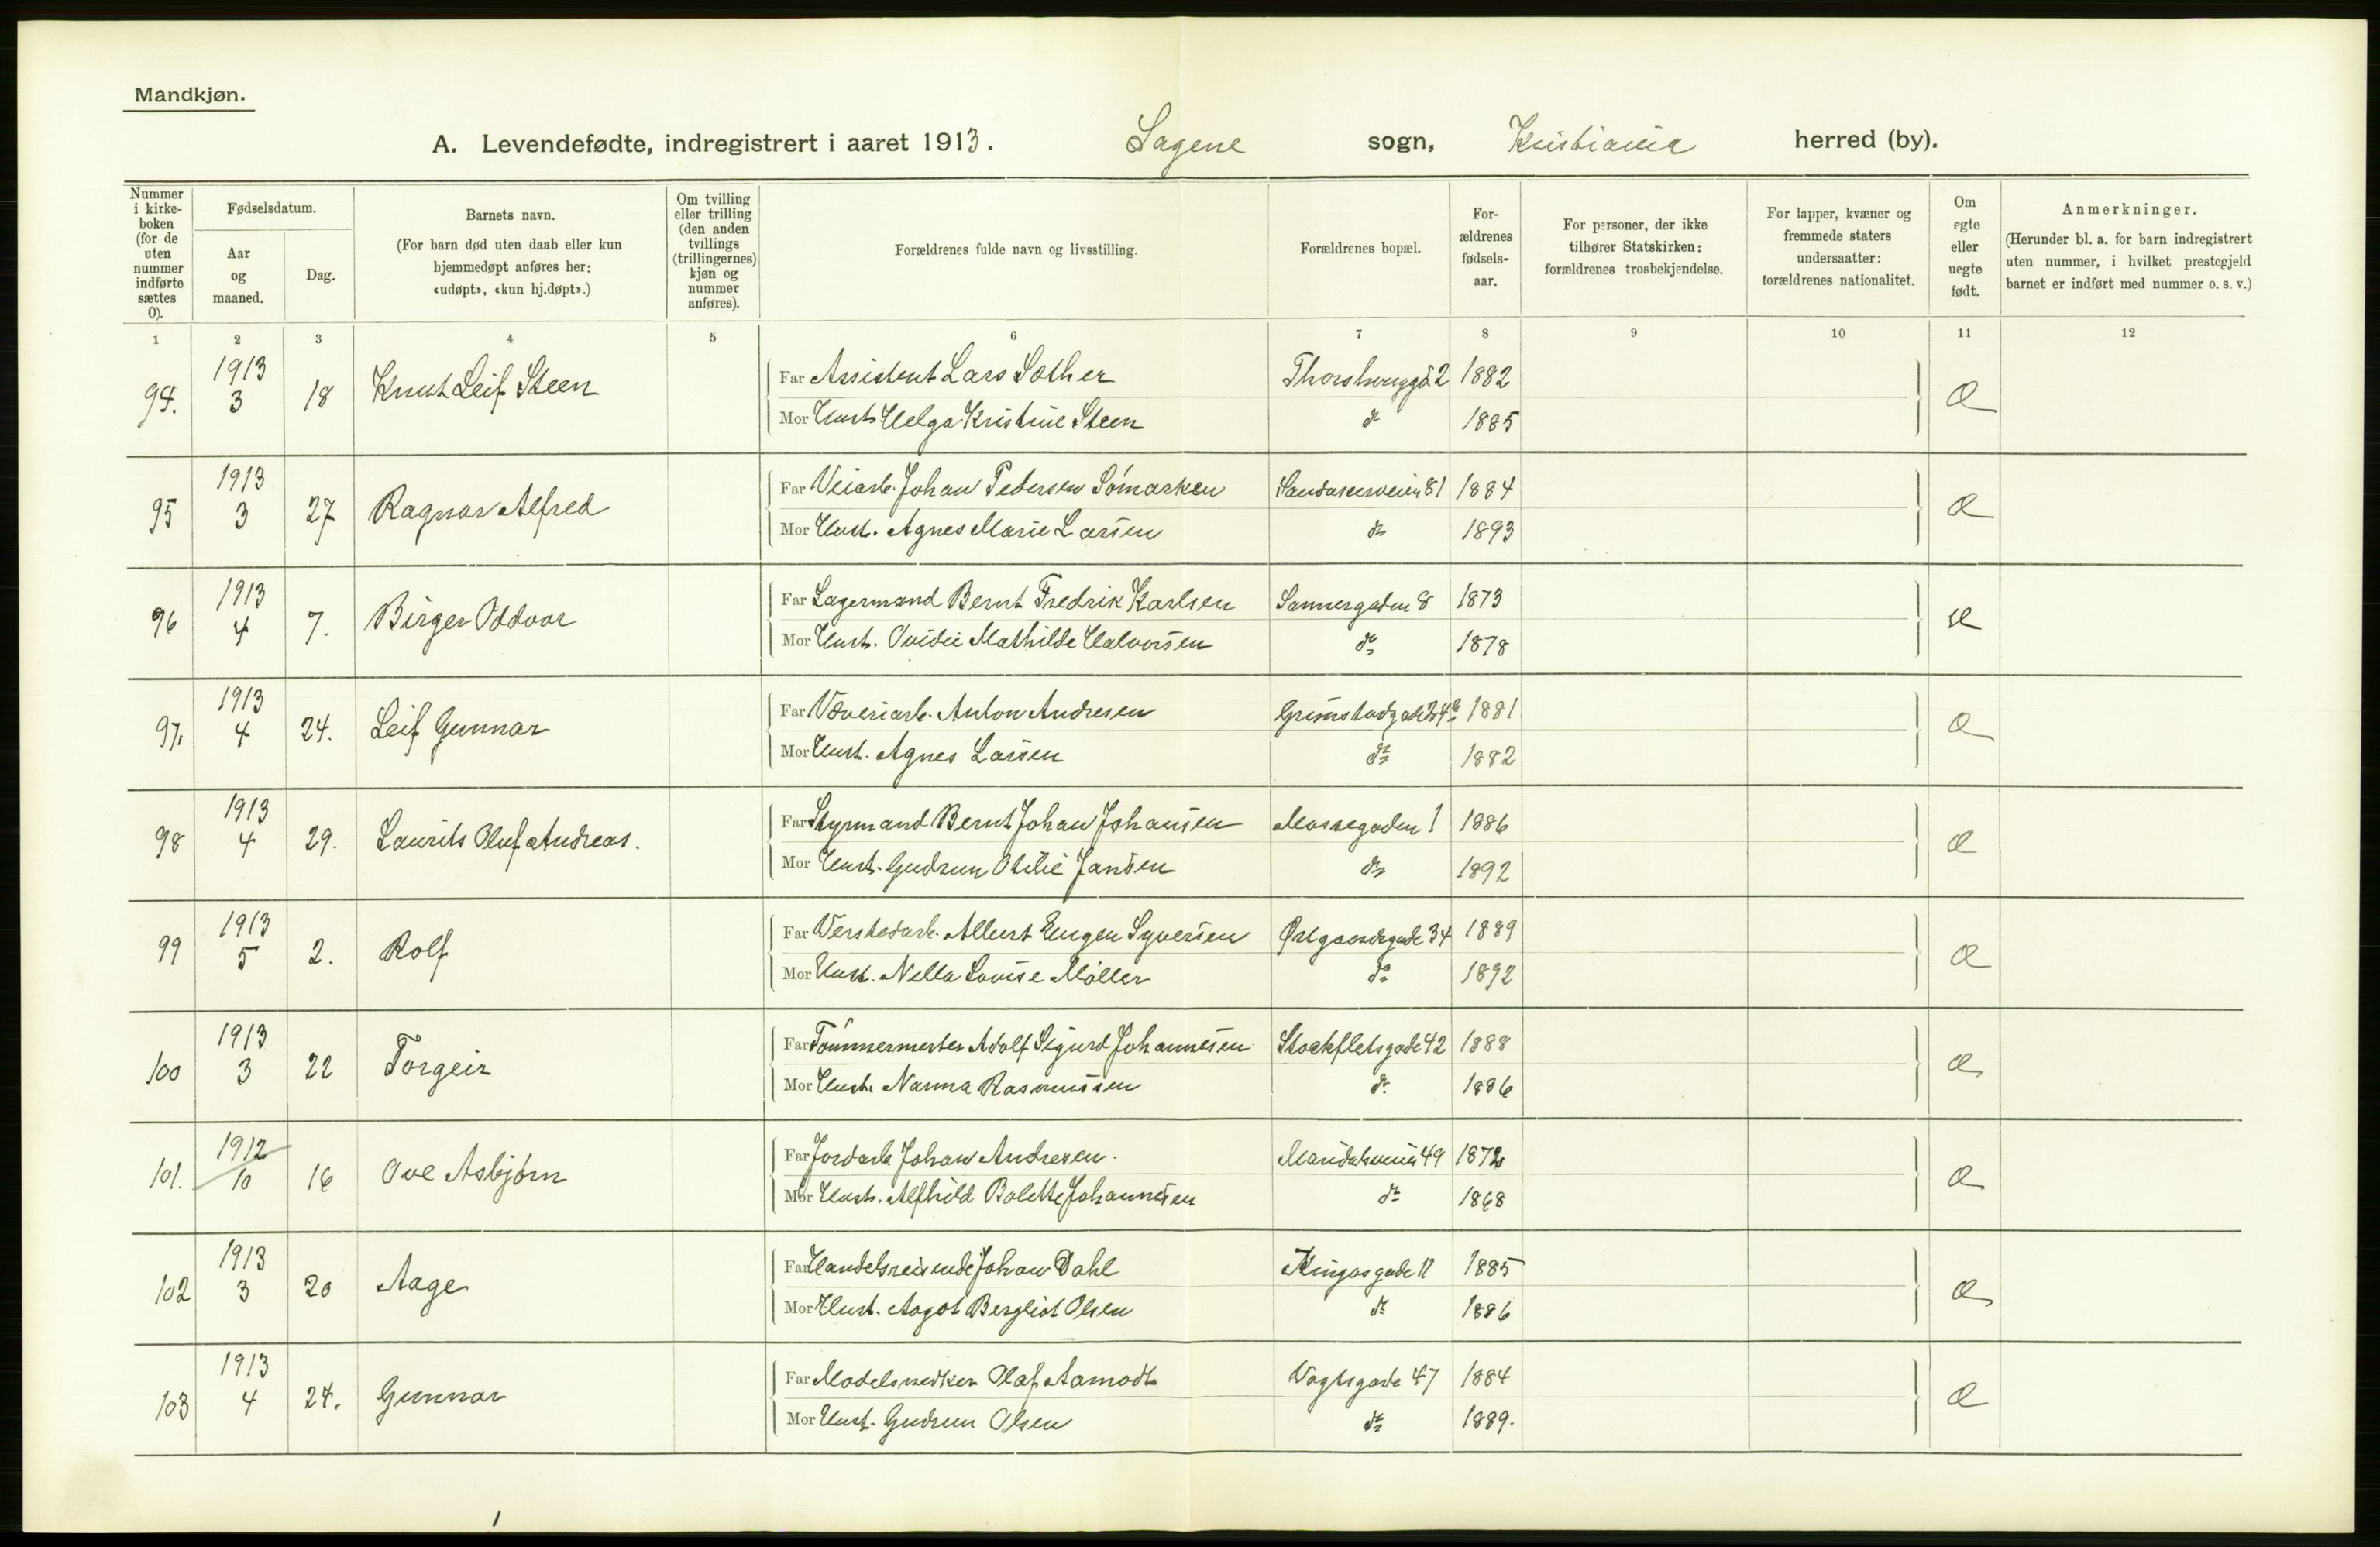 Mandkjøn.
A. Levendefødte, indregistrert i aaret 1913. Sagene sogn, Kristiania herred (by).
Nummer i kirke-boken (for de uten nummer indførte sættes 0).
Fødselsdatum.
Aar og maaned.
Dag.
Barnets navn.
(For barn død uten daab eller kun hjemmedøpt anføres her: «udøpt», «kun hj.døpt».)
Om tvilling eller trilling (den anden tvillings (trillingernes) kjøn og nummer anføres).
Forældrenes fulde navn og livsstilling.
Forældrenes bopæl.
For-ældrenes fødsels-aar.
For personer, der ikke tilhører Statskirken: forældrenes trosbekjendelse.
For lapper, kvæner og fremmede staters undersaatter: forældrenes nationalitet.
Om egte eller uegte født.
Anmerkninger.
(Herunder bl. a. for barn indregistrert uten nummer, i hvilket prestegjeld barnet er indført med nummer o. s. v.)
1 2 3 4 5 6 7 8 9 10 11 12
94. 1913 3 18 Knut Leif Steen Far Assistent Lars Sæther 2 1882 Æ
Mor Hust. Helga Kristine Steen do 1885
95 1913 3 27 Ragnar Alfred Far Veiarb. Johan Pedersen Sömarken Sandakerveien 81 1884 Æ
Mor Hust. Agnes Marie Larsen do 1893
96 1913 4 7. Birger Oddvar Far Lagermand Bernt Fredrik Karlsen Sannergaden 8 1873 Æ
Mor Hust. Ovidie Mathilde Halvorsen do 1878
97. 1913 4 24. Leif Gunnar Far Væveriarb. Anton Andresen 1881 Æ
Mor Hust. Agnes Larsen do 1882
98 1913 4 29. Laurits Oluf Andreas. Far Styrmand Bernt Johan Johansen Mossegaden 1 1886 Æ
Mor Hust. Gudrun Otilie Jansen do 1892
99 1913 5 2. Rolf Far Verkstedarb. Albert Eugen Syversen Østgaardsgade 34 1889 Æ
Mor Hust. Nella Lovise Möller do 1892
100 1913 3 22 Torgeir Far Tömmermester Adolf Sigurd Johannesen Stockfletsgade 42 1888 Æ
Mor Hust. Nanna Rasmussen do 1886
101. 1912 10 16 Ove Asbjörn Far Jordarb Johan Andresen. Maridalsveien 49 1872 Æ
Mor Hust. Alfhild Bolette Johannesen do 1868
102 1913 3 20 Aage Far Handelsreisende Johan Dahl Kingosgade 11 1885 Æ
Mor Hust. Aagot Bergliot Olsen do 1886
103 1913 4 24. Gunnar Far Modelsnedker Olaf Aamodt Vogtsgade 47 1884 Æ
Mor Hust. Gudrun Olsen do 1889.